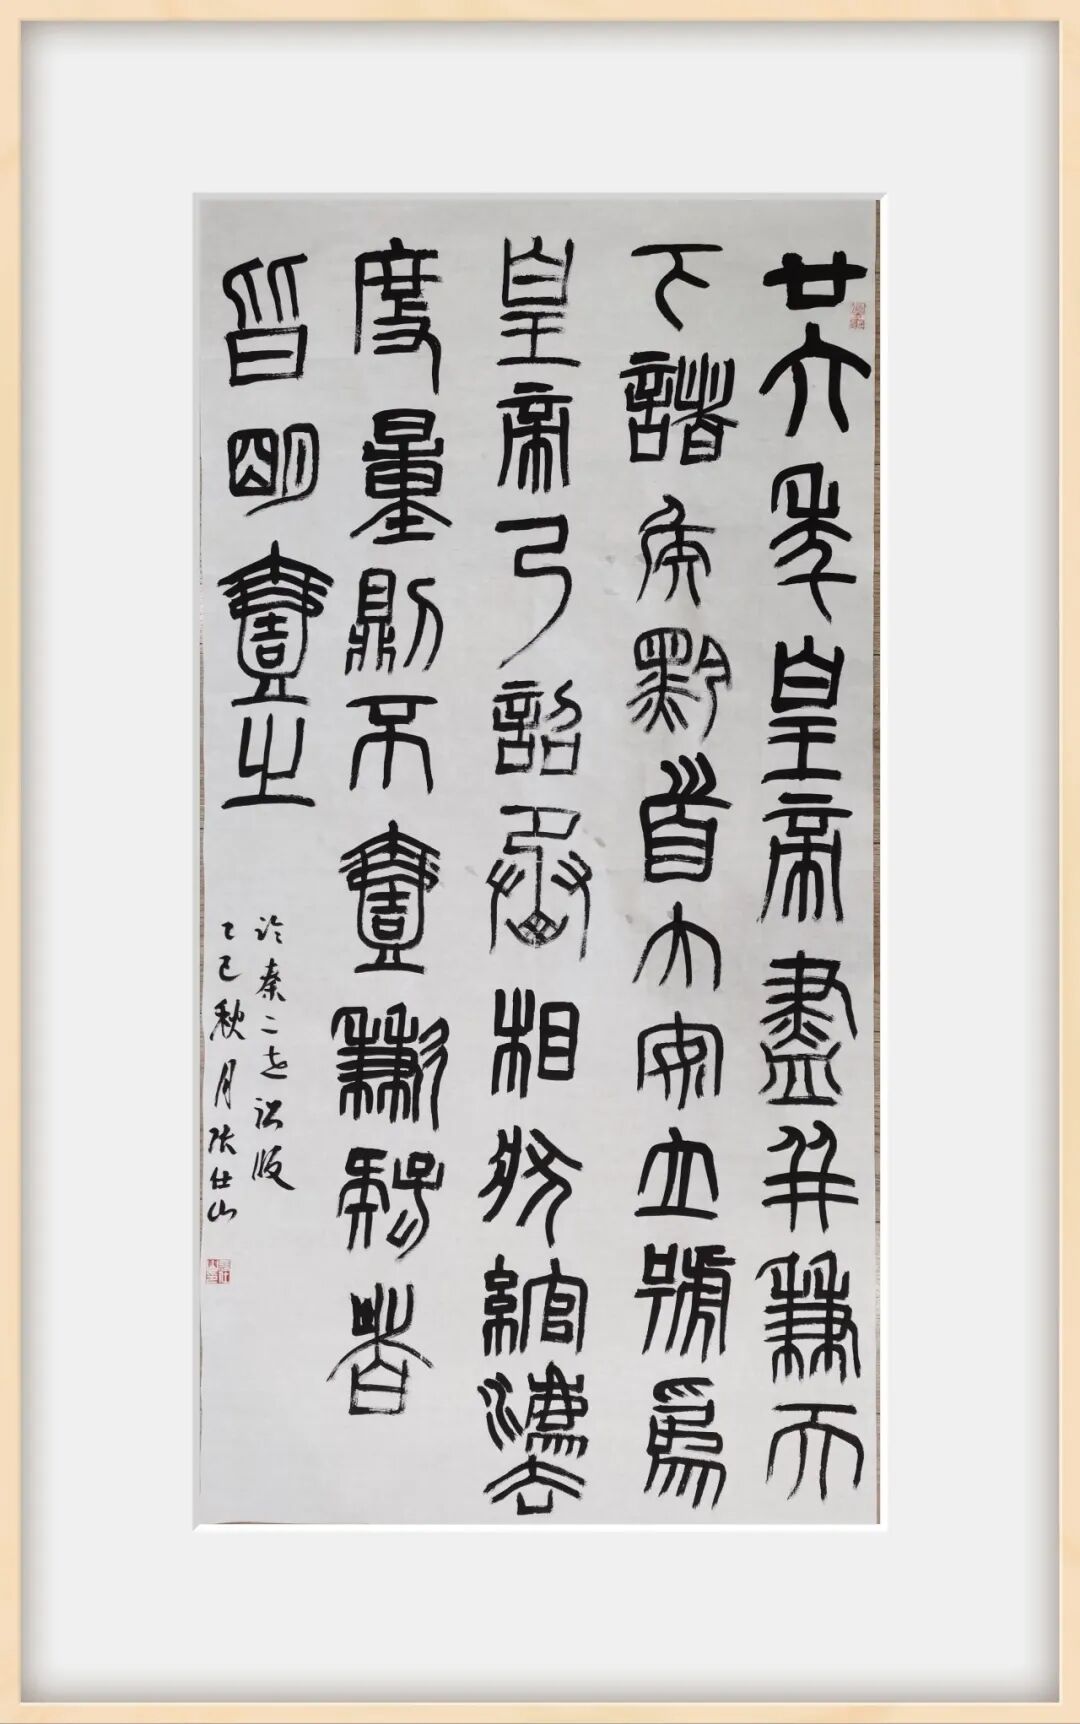 廿六年皇帝盡并兼天
下諸矦黔首大安立號爲
皇帝乃詔丞相狀綰灋
度量則不壹歉疑者
皆明壹之
临秦二世诏版
乙巳秋月张仕山